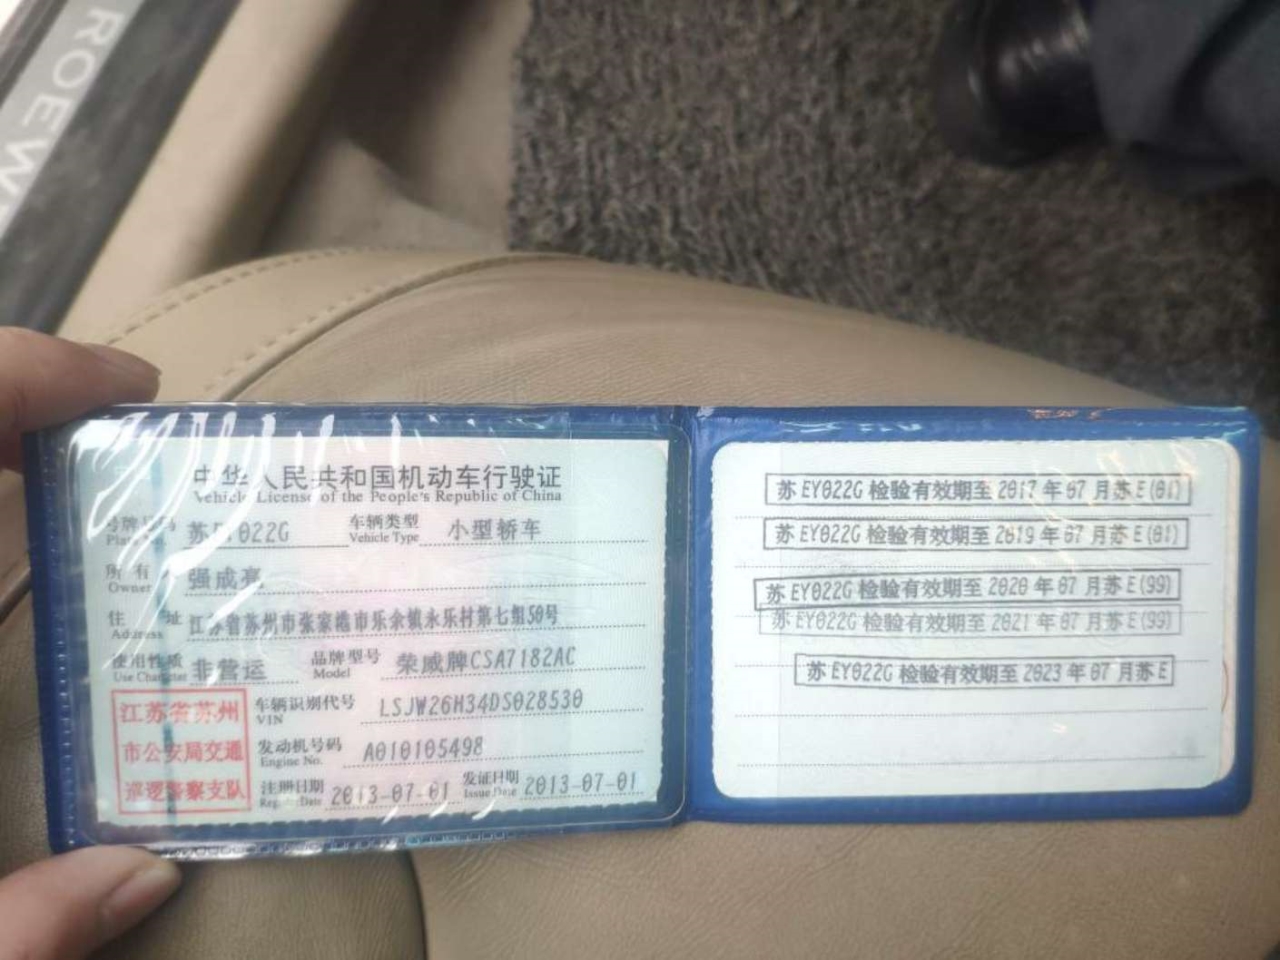 ROEW
中华人民共和国机动车行驶证
Vehicle License of the People's Republic of China
号牌号码 苏EY022G 车辆类型 小型轿车
Plate No. Vehicle Type
所有 强成亮
Owner
住址 江苏省苏州市张家港市乐余镇永乐村第七组50号
Address
使用性质 非营运 品牌型号 荣威牌CSA7182AC
Use Character Model
江苏省苏州
市公安局交通
巡逻警察支队
车辆识别代号 LSJW26H34DS028530
VIN
发动机号码 A010105498
Engine No.
注册日期 2013-07-01 发证日期 2013-07-01
Register Date Issue Date
苏EY022G检验有效期至2017年07月苏E(01)
苏EY022G检验有效期至2019年07月苏E(01)
苏EY022G检验有效期至2020年07月苏E(99)
苏EY022G检验有效期至2021年07月苏E(99)
苏EY022G检验有效期至2023年07月苏E